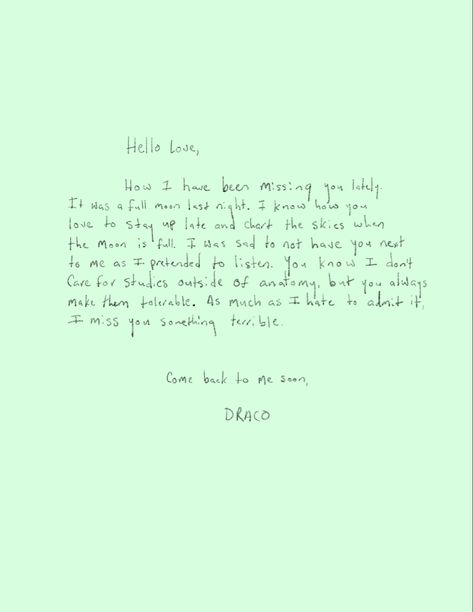 Hello Love,
How I have been missing you lately.
It was a full moon last night. I know how you
love to stay up late and chart the skies when
the moon is full. I was sad to not have you next
to me as I pretended to listen. You know I don't
Care for studies outside of anatomy, but you always
make them tolerable. As much as I hate to admit it,
I miss you something terrible.
Come back to me soon,
DRACO